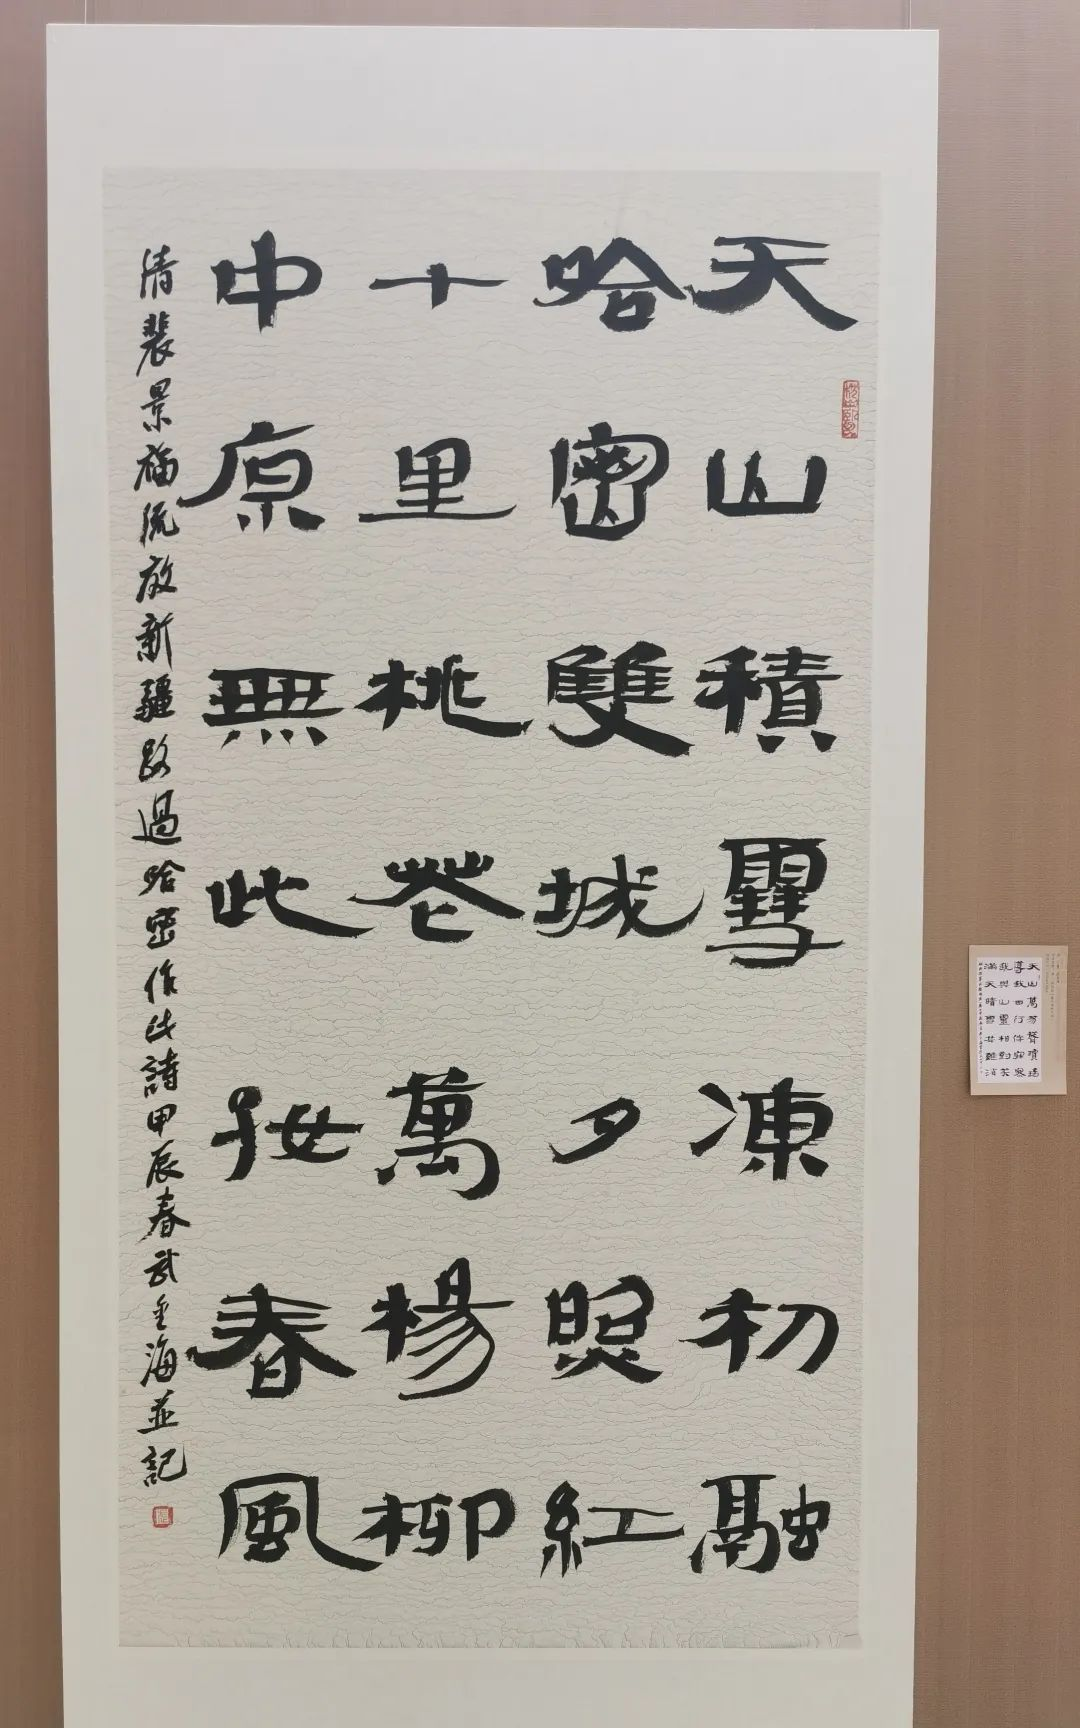 天山積雪凍初融
哈密雙城夕照紅
十里桃花萬楊柳
中原無此好春風
清裴景福流放新疆路過哈密作此詩甲辰春武金海並記